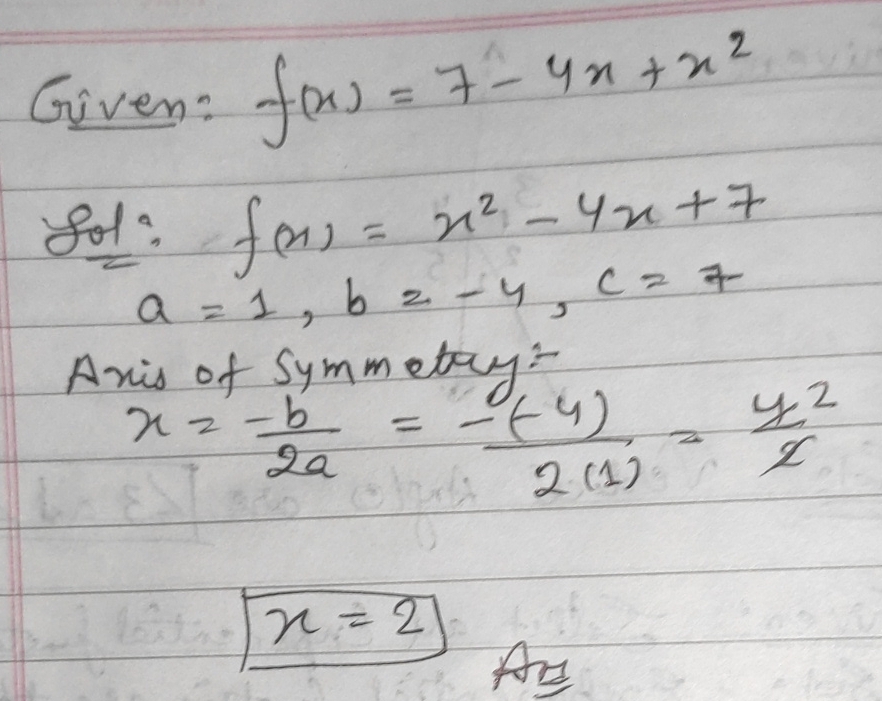 Given: f(x) = 7 - 4x + x²
Sol: f(x) = x² - 4x + 7
a = 1, b = -4, c = 7
Axis of Symmetry:-
x = -b/2a = -(-4)/2(1) = 4/2 2
x = 2
Ans